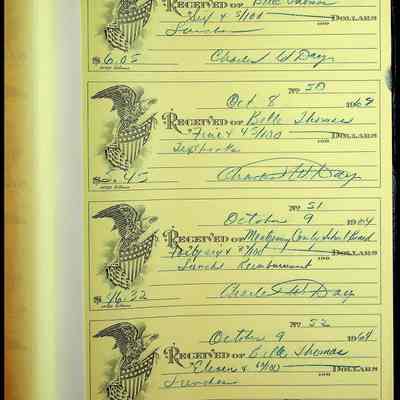 RECEIVED OF Belle Thomas
Six & 5/100 DOLLARS
Lunches
$6.05 Charles W Day
No 50
Oct 8 1964
RECEIVED OF Belle Thomas
Five & 45/100 DOLLARS
Textbooks
$5.45 Charles W Day
No 51
October 9 1964
RECEIVED OF Montgomery County School Board
Forty six & 32/100 DOLLARS
Lunch Reimbursement
$46.32 Charles W Day
No 52
October 9 1964
RECEIVED OF Belle Thomas
Eleven & /100 DOLLARS
Lunches